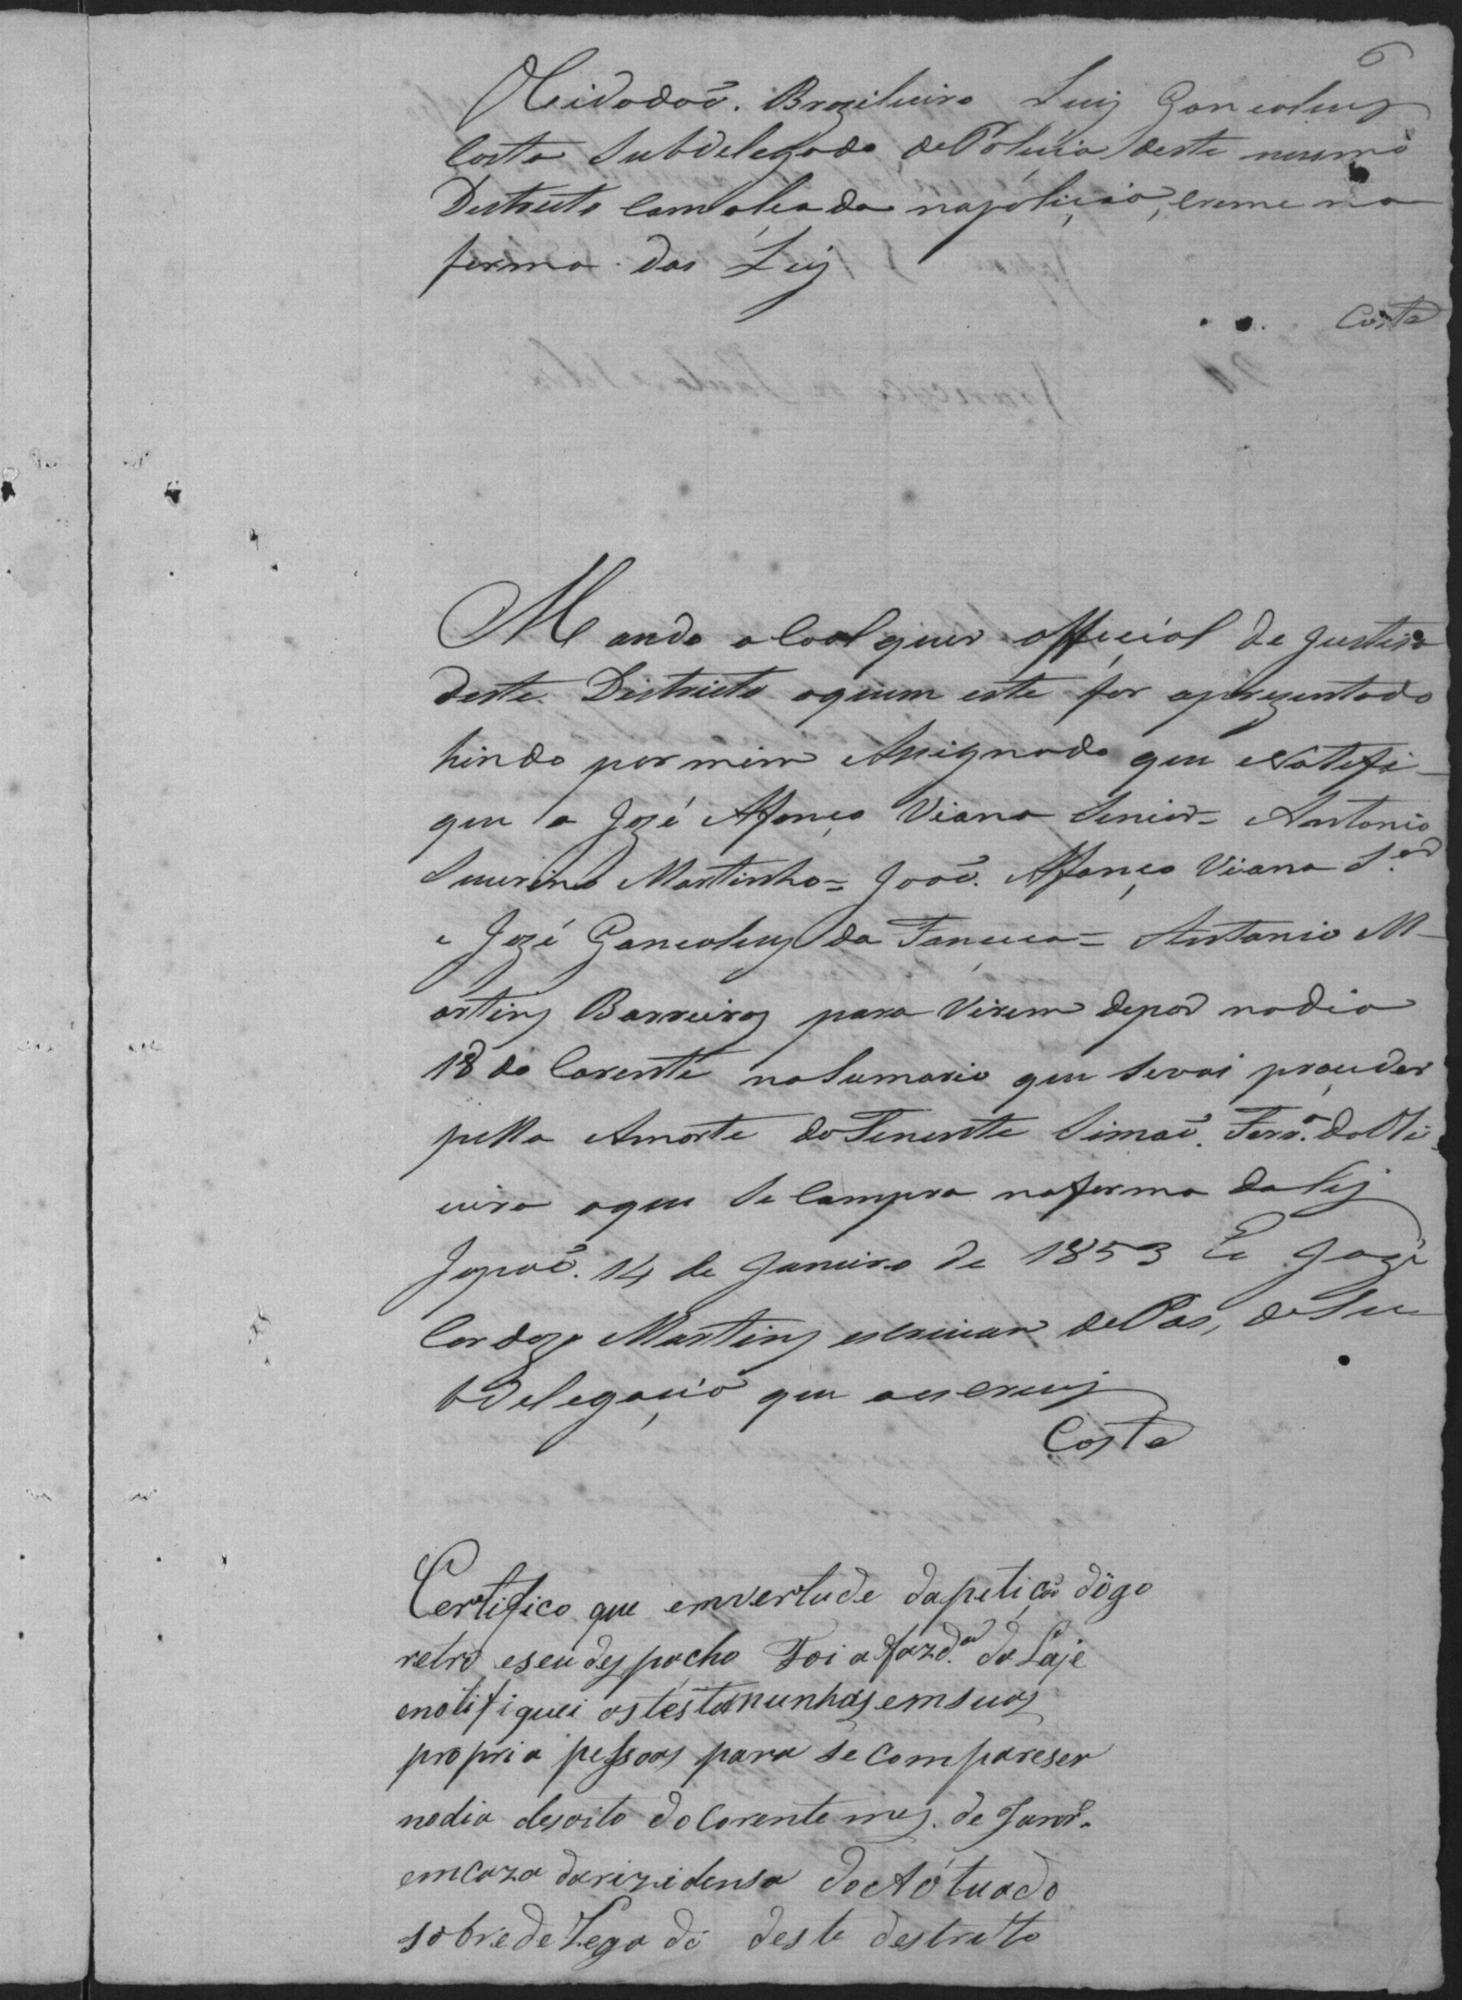 6
OCidadaõ. Brazileiro Luiz Goncalvez
Costa Subdelegado de Policia deste mesmo
Destricto com alcada na policia, crime na
forma das Leiz
Costa
Mando a Coalquer official de justisa
deste Districto aquem este for aprezentado
hindo por mim Assignado que Notefi-
que a Jozé Affonço Viana Senior= Antonio
Severino Martinho= Joaõ. Affonço Viana S.or
e Jozé Goncalvez da Fonceca= Antonio M-
artinz Barreiroz para Virem depor nodia
18 do Corente no Sumario que sevai proceder
pella Amorte do Tenente Simaõ. Ferr.a do Oli
veira oque se Compra naforma da Lej
Japaõ. 14 de Janeiro de 1853 Eu Jozé
Cardozo Martinz escrivan de Pas, de Su
bdelegacio que oescrevj
Costa
Certifico que emvertude dapetiçaõ digo
retro eseu despacho Foi a fazd.a da Laje
enotifiquei astestemunhas emsuas
propria pessoas para se compareser
nodia desoito do Corente mes. de Janr.o
emcaza darizidensa do Autuado
sobredelegado deste destrito